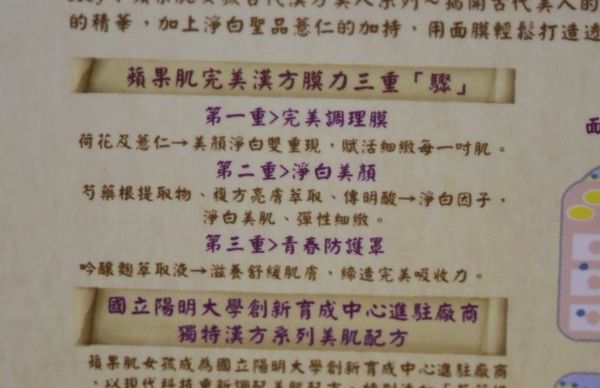 的精華，加上淨白聖品薏仁的加持，用面膜輕鬆打造透
蘋果肌完美漢方膜力三重「驟」
第一重>完美調理膜
荷花及薏仁→美顏淨白雙重現，賦活細緻每一吋肌。
第二重>淨白美顏
芍藥根提取物、複方亮膚萃取、傳明酸→淨白因子，
淨白美肌、彈性細緻。
第三重>青春防護罩
吟釀麴萃取液→滋養舒緩肌膚，締造完美吸收力。
國立陽明大學創新育成中心進駐廠商
獨特漢方系列美肌配方
蘋果肌女孩成為國立陽明大學創新育成中心進駐廠商
面